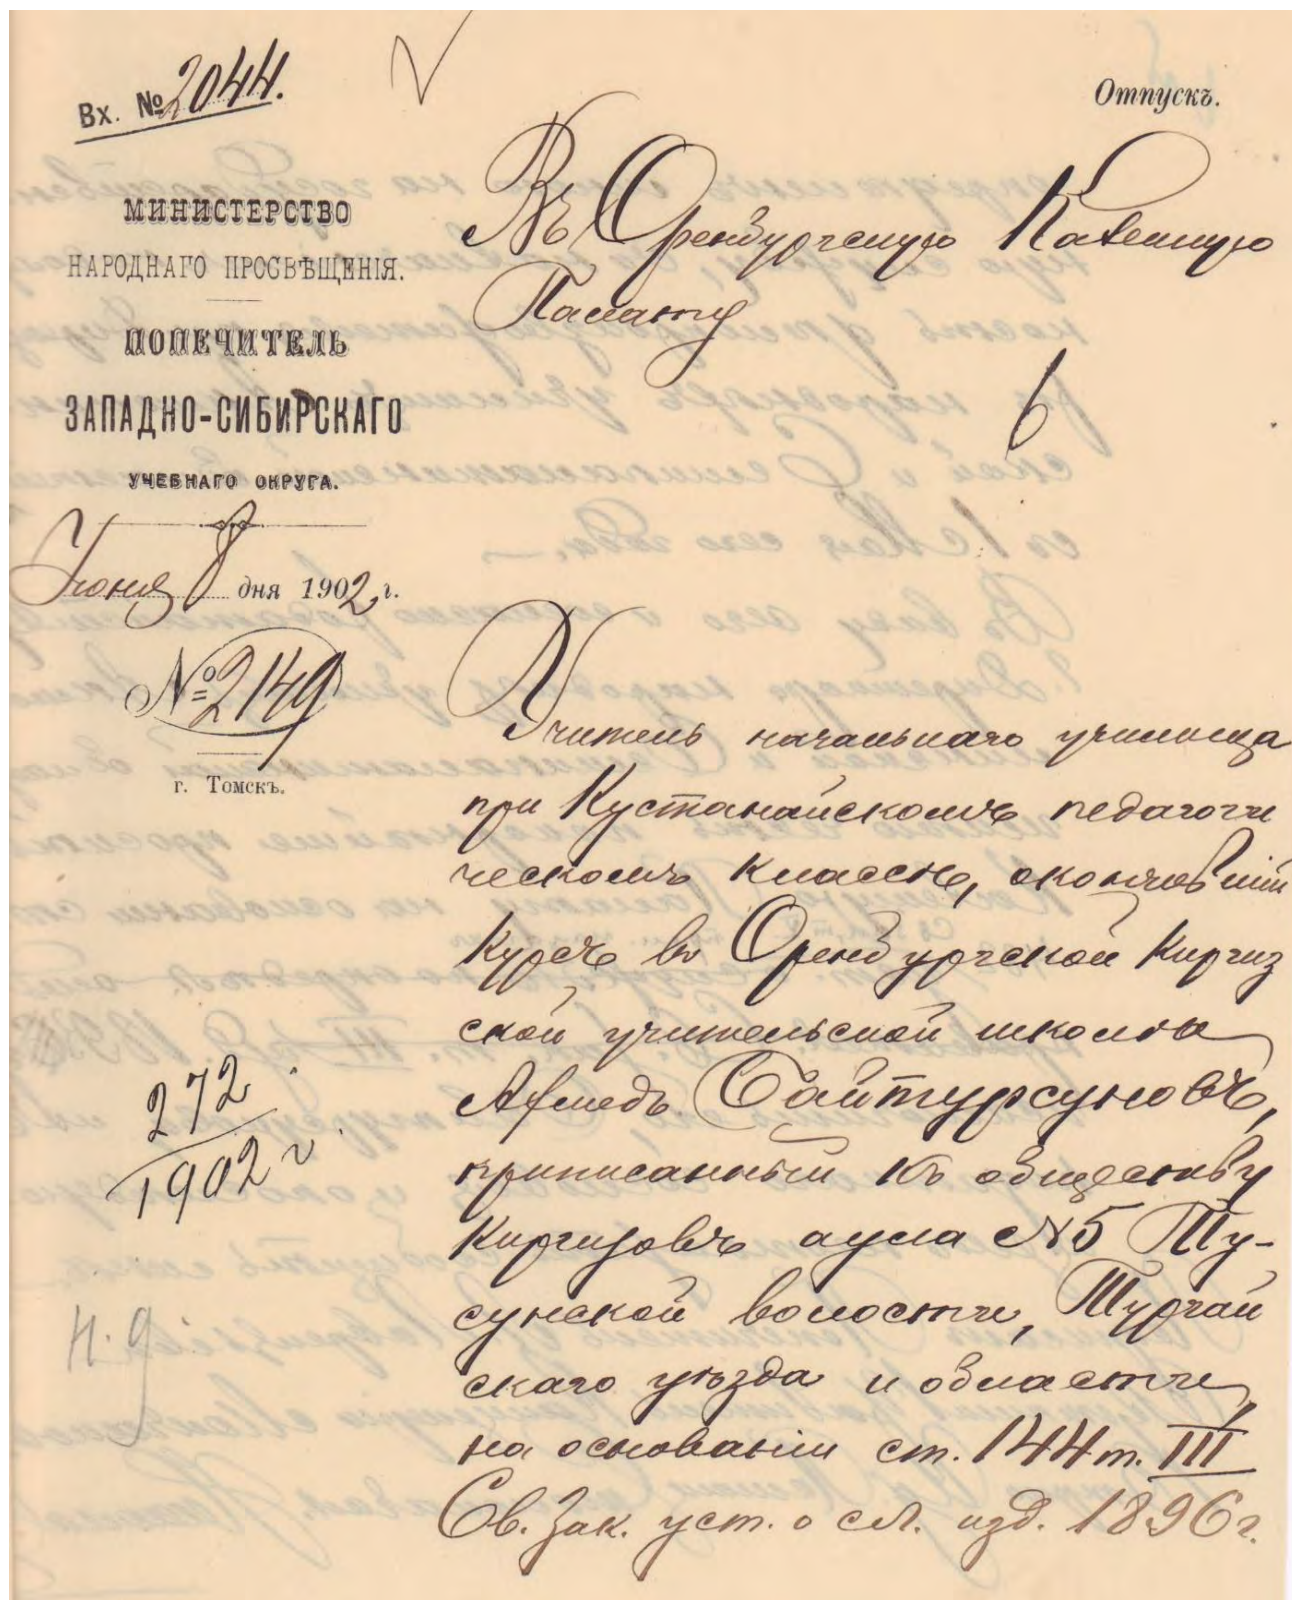 Вх. № 2044.
Отпускъ.
МИНИСТЕРСТВО
НАРОДНАГО ПРОСВѢЩЕНІЯ.
ПОПЕЧИТЕЛЬ
ЗАПАДНО-СИБИРСКАГО
УЧЕБНАГО ОКРУГА.
Іюня 8 дня 1902 г.
№ 2149
г. Томскъ.
Въ Оренбургскую Казенную
Палату
6
Учитель начальнаго училища
при Кустанайскомъ педагоги
ческомъ классѣ, окончившій
курсъ въ Оренбургской Киргиз
ской учительской школѣ
Ахмедъ Байтурсуновъ,
приписанный къ обществу
Киргизовъ аула №5 Ту-
сунской волости, Тургай
скаго уѣзда и области,
на основаніи ст. 144 т. III
Св. Зак. уст. о сл. изд. 1896 г.
272
1902 г.
Н. 9.